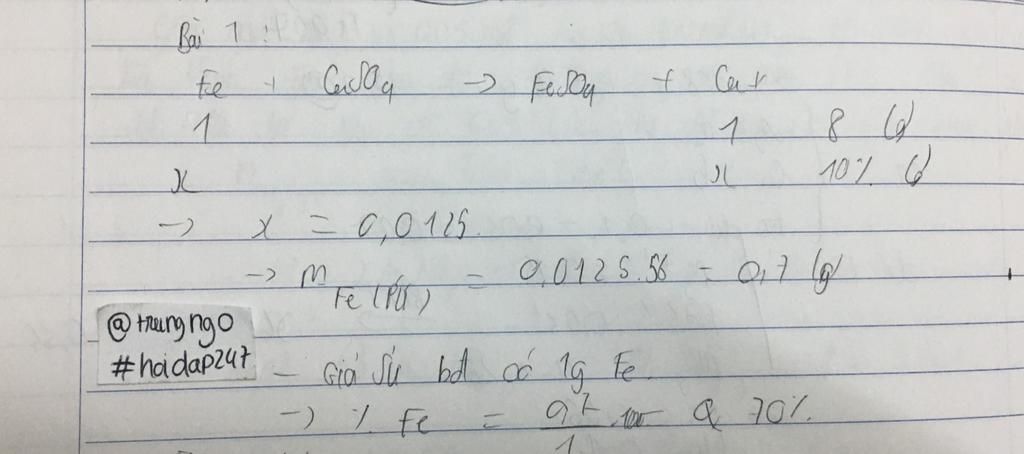 Bài 1:
Fe + CuSO4 → FeSO4 + Cu ↓
1 1 8 (g)
x x 10% (g)
→ x = 0,0125
→ m Fe (PƯ) = 0,0125.56 = 0,7 (g)
@trungngo
#hoidap247
- Giả sử bđ có 1g Fe.
→ % Fe = 0,7 / 1 .100 = 70%.